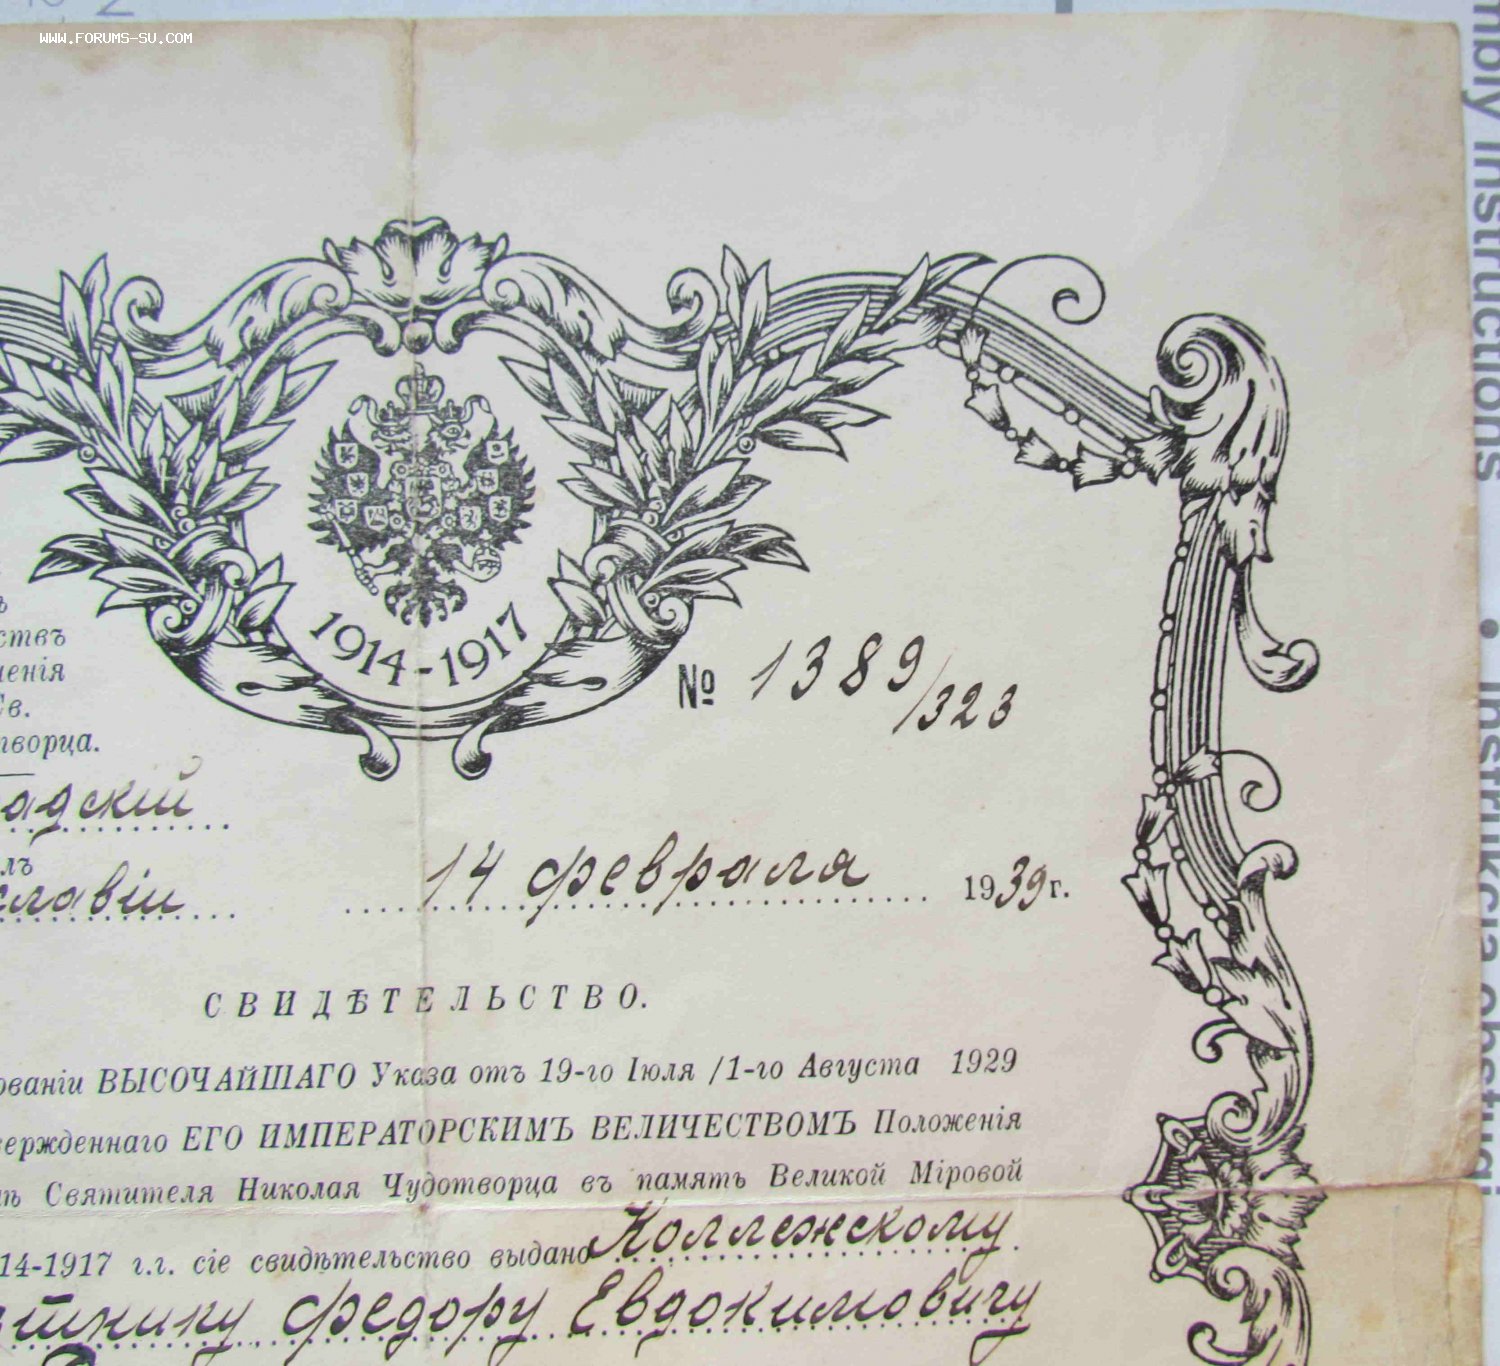 WWW.FORUMS-SU.COM
mbly instructions
1914-1917
№ 1389/323
ствъ
ченія
Св.
творца.
адскій
лъ
славіи
14 февраля 1939 г.
СВИДѢТЕЛЬСТВО.
ованіи ВЫСОЧАЙШАГО Указа отъ 19-го Іюля /1-го Августа 1929
вержденнаго ЕГО ИМПЕРАТОРСКИМЪ ВЕЛИЧЕСТВОМЪ Положенія
нъ Святителя Николая Чудотворца въ память Великой Міровой
14-1917 г.г. сіе свидѣтельство выдано Коллежскому
ѣтнику Федору Евдокимовичу
• Instrukcja obsługi